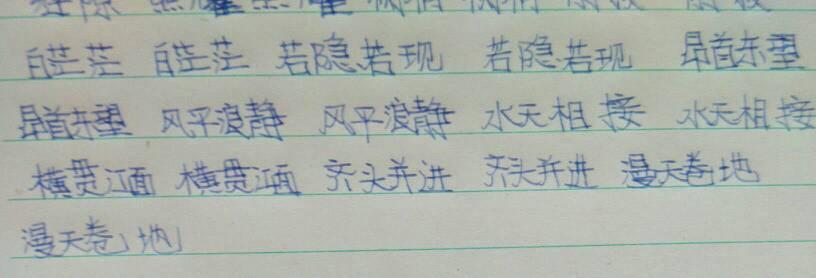 白茫茫 白茫茫 若隐若现 若隐若现 昂首东望
昂首东望 风平浪静 风平浪静 水天相接 水天相接
横贯江面 横贯江面 齐头并进 齐头并进 漫天卷地
漫天卷地